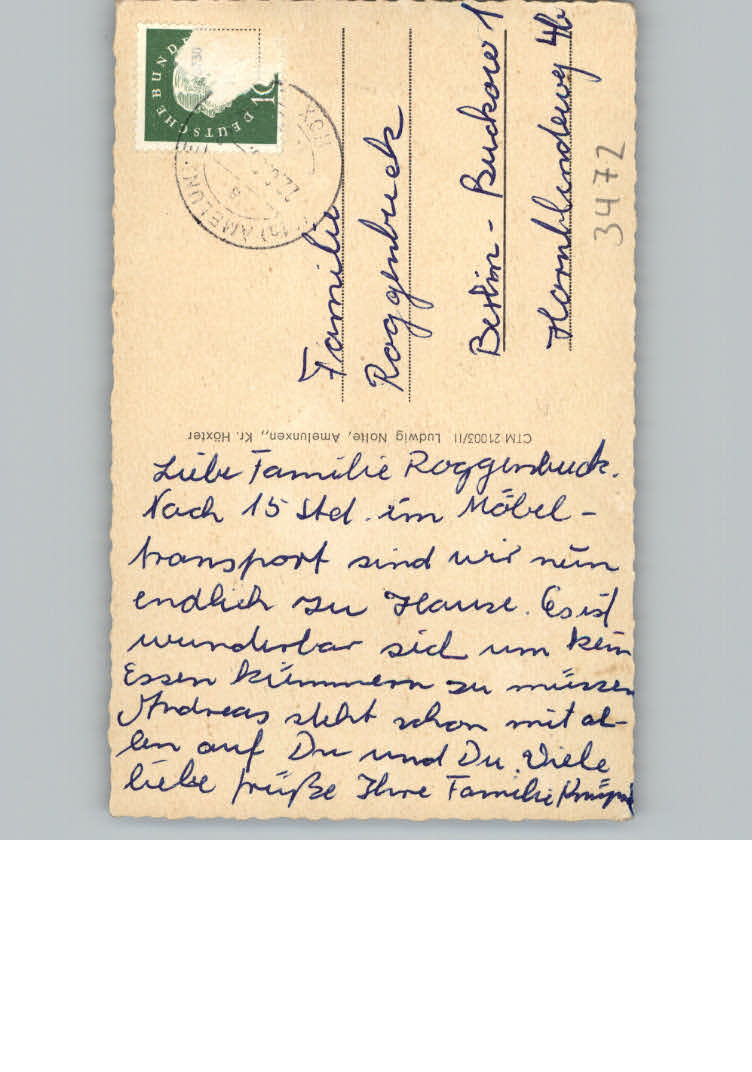 DEUTSCHE BUND
10
AMELUN
HÖX
22
Familie
Roggenbuck
Berlin - Buckow 1
Hornblendeweg 4b
3472
CTM 21003/11 Ludwig Nolte, Amelunxen,, Kr. Höxter
Liebe Familie Roggenbuck.
Nach 15 Std. im Möbel-
transport sind wir nun
endlich zu Hause. Es ist
wunderbar sich um kein
Essen kümmern zu müssen
Andreas steht schon mit al-
len auf Du und Du. Viele
liebe Grüße Ihre Familie